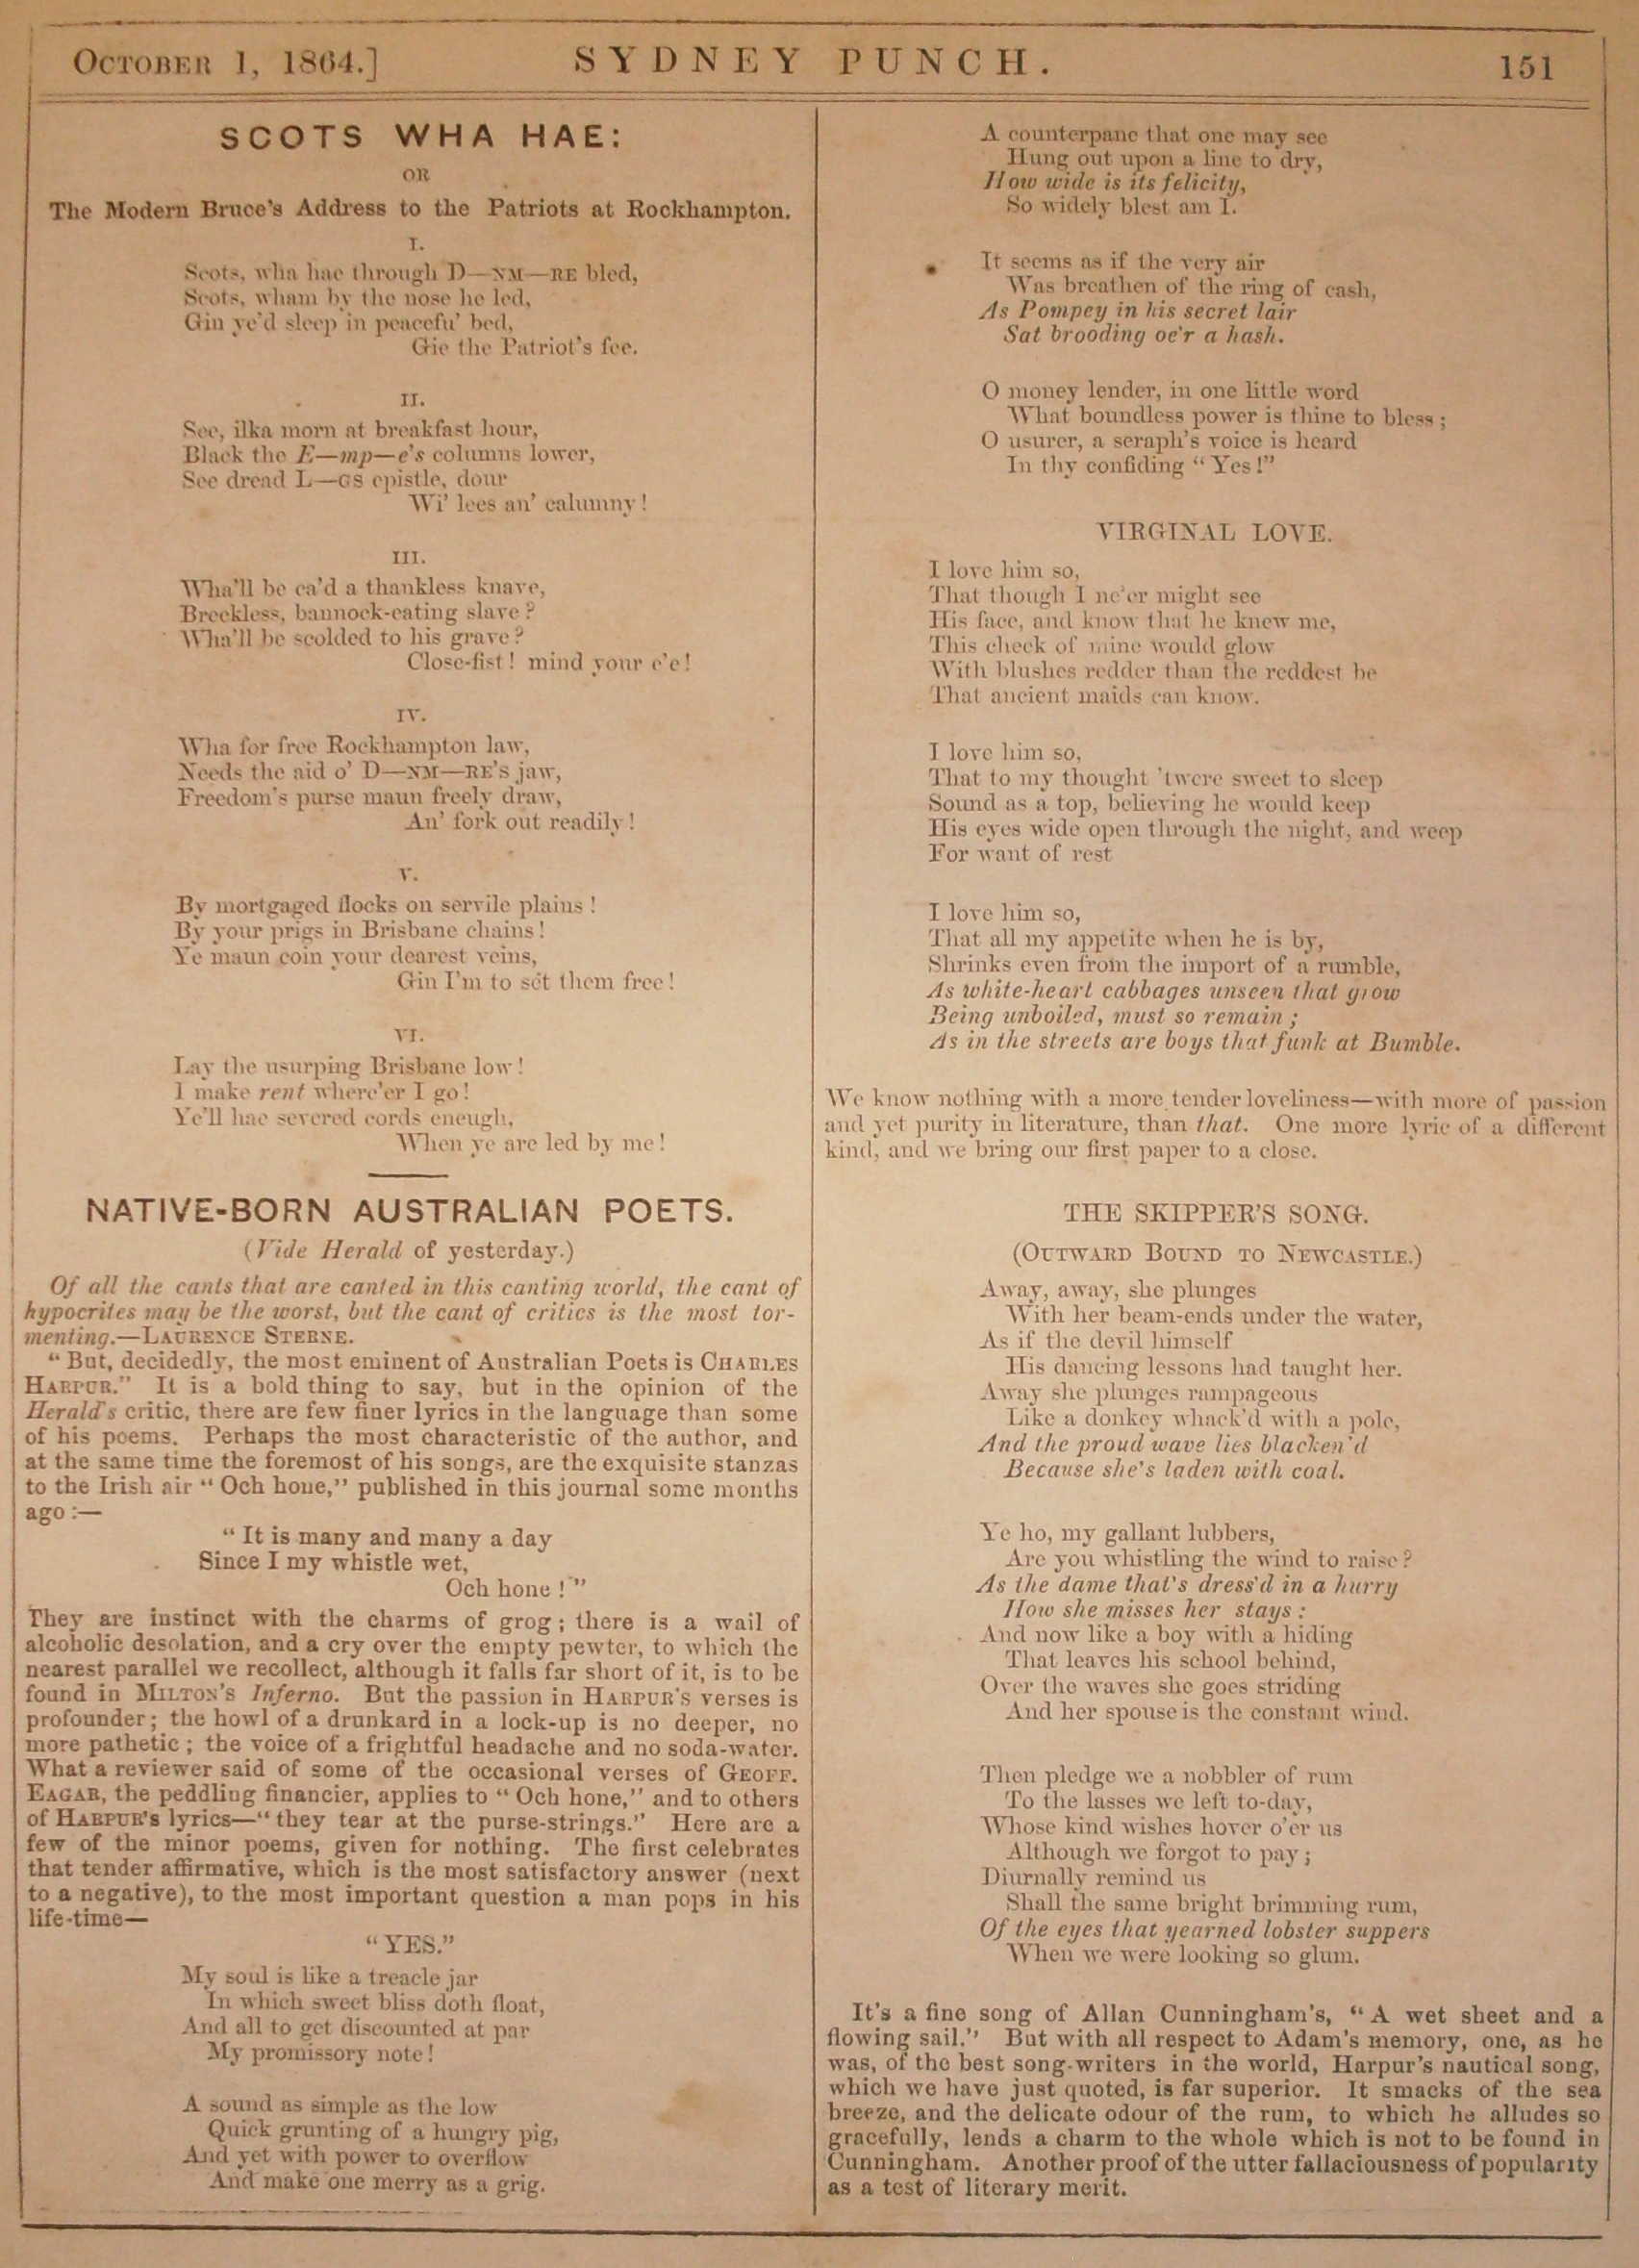 OCTOBER 1, 1864.] SYDNEY PUNCH. 151
SCOTS WHA HAE:
OR
The Modern Bruce's Address to the Patriots at Rockhampton.
I.
Scots, wha hae through D—NM—RE bled,
Scots, wham by the nose he led,
Gin ye'd sleep in peacefu' bed,
Gie the Patriot's fee.
II.
See, ilka morn at breakfast hour,
Black the E—mp—e's columns lower,
See dread L—GS epistle, dour
Wi' lees an' calumny!
III.
Wha'll be ca'd a thankless knave,
Breekless, bannock-eating slave?
Wha'll be scolded to his grave?
Close-fist! mind your e'e!
IV.
Wha for free Rockhampton law,
Needs the aid o' D—NM—RE'S jaw,
Freedom's purse maun freely draw,
An' fork out readily!
V.
By mortgaged flocks on servile plains!
By your prigs in Brisbane chains!
Ye maun coin your dearest veins,
Gin I'm to set them free!
VI.
Lay the usurping Brisbane low!
I make rent where'er I go!
Ye'll hae severed cords eneugh,
When ye are led by me!
NATIVE-BORN AUSTRALIAN POETS.
(Vide Herald of yesterday.)
Of all the cants that are canted in this canting world, the cant of
hypocrites may be the worst, but the cant of critics is the most tor-
menting.—LAURENCE STERNE.
"But, decidedly, the most eminent of Australian Poets is CHARLES
HARPUR." It is a bold thing to say, but in the opinion of the
Herald's critic, there are few finer lyrics in the language than some
of his poems. Perhaps the most characteristic of the author, and
at the same time the foremost of his songs, are the exquisite stanzas
to the Irish air "Och hone," published in this journal some months
ago:—
"It is many and many a day
Since I my whistle wet,
Och hone!"
They are instinct with the charms of grog; there is a wail of
alcoholic desolation, and a cry over the empty pewter, to which the
nearest parallel we recollect, although it falls far short of it, is to be
found in MILTON'S Inferno. But the passion in HARPUR'S verses is
profounder; the howl of a drunkard in a lock-up is no deeper, no
more pathetic; the voice of a frightful headache and no soda-water.
What a reviewer said of some of the occasional verses of GEOFF.
EAGAR, the peddling financier, applies to "Och hone," and to others
of HARPUR'S lyrics—"they tear at the purse-strings." Here are a
few of the minor poems, given for nothing. The first celebrates
that tender affirmative, which is the most satisfactory answer (next
to a negative), to the most important question a man pops in his
life-time—
"YES."
My soul is like a treacle jar
In which sweet bliss doth float,
And all to get discounted at par
My promissory note!
A sound as simple as the low
Quick grunting of a hungry pig,
And yet with power to overflow
And make one merry as a grig.
A counterpane that one may see
Hung out upon a line to dry,
How wide is its felicity,
So widely blest am I.
It seems as if the very air
Was breathen of the ring of cash,
As Pompey in his secret lair
Sat brooding oe'r a hash.
O money lender, in one little word
What boundless power is thine to bless;
O usurer, a seraph's voice is heard
In thy confiding "Yes!"
VIRGINAL LOVE.
I love him so,
That though I ne'er might see
His face, and know that he knew me,
This cheek of mine would glow
With blushes redder than the reddest be
That ancient maids can know.
I love him so,
That to my thought 'twere sweet to sleep
Sound as a top, believing he would keep
His eyes wide open through the night, and weep
For want of rest
I love him so,
That all my appetite when he is by,
Shrinks even from the import of a rumble,
As white-heart cabbages unseen that grow
Being unboiled, must so remain;
As in the streets are boys that funk at Bumble.
We know nothing with a more tender loveliness—with more of passion
and yet purity in literature, than that. One more lyric of a different
kind, and we bring our first paper to a close.
THE SKIPPER'S SONG.
(OUTWARD BOUND TO NEWCASTLE.)
Away, away, she plunges
With her beam-ends under the water,
As if the devil himself
His dancing lessons had taught her.
Away she plunges rampageous
Like a donkey whack'd with a pole,
And the proud wave lies blacken'd
Because she's laden with coal.
Ye ho, my gallant lubbers,
Are you whistling the wind to raise?
As the dame that's dress'd in a hurry
How she misses her stays:
And now like a boy with a hiding
That leaves his school behind,
Over the waves she goes striding
And her spouse is the constant wind.
Then pledge we a nobbler of rum
To the lasses we left to-day,
Whose kind wishes hover o'er us
Although we forgot to pay;
Diurnally remind us
Shall the same bright brimming rum,
Of the eyes that yearned lobster suppers
When we were looking so glum.
It's a fine song of Allan Cunningham's, "A wet sheet and a
flowing sail." But with all respect to Adam's memory, one, as he
was, of the best song-writers in the world, Harpur's nautical song,
which we have just quoted, is far superior. It smacks of the sea
breeze, and the delicate odour of the rum, to which he alludes so
gracefully, lends a charm to the whole which is not to be found in
Cunningham. Another proof of the utter fallaciousness of popularity
as a test of literary merit.